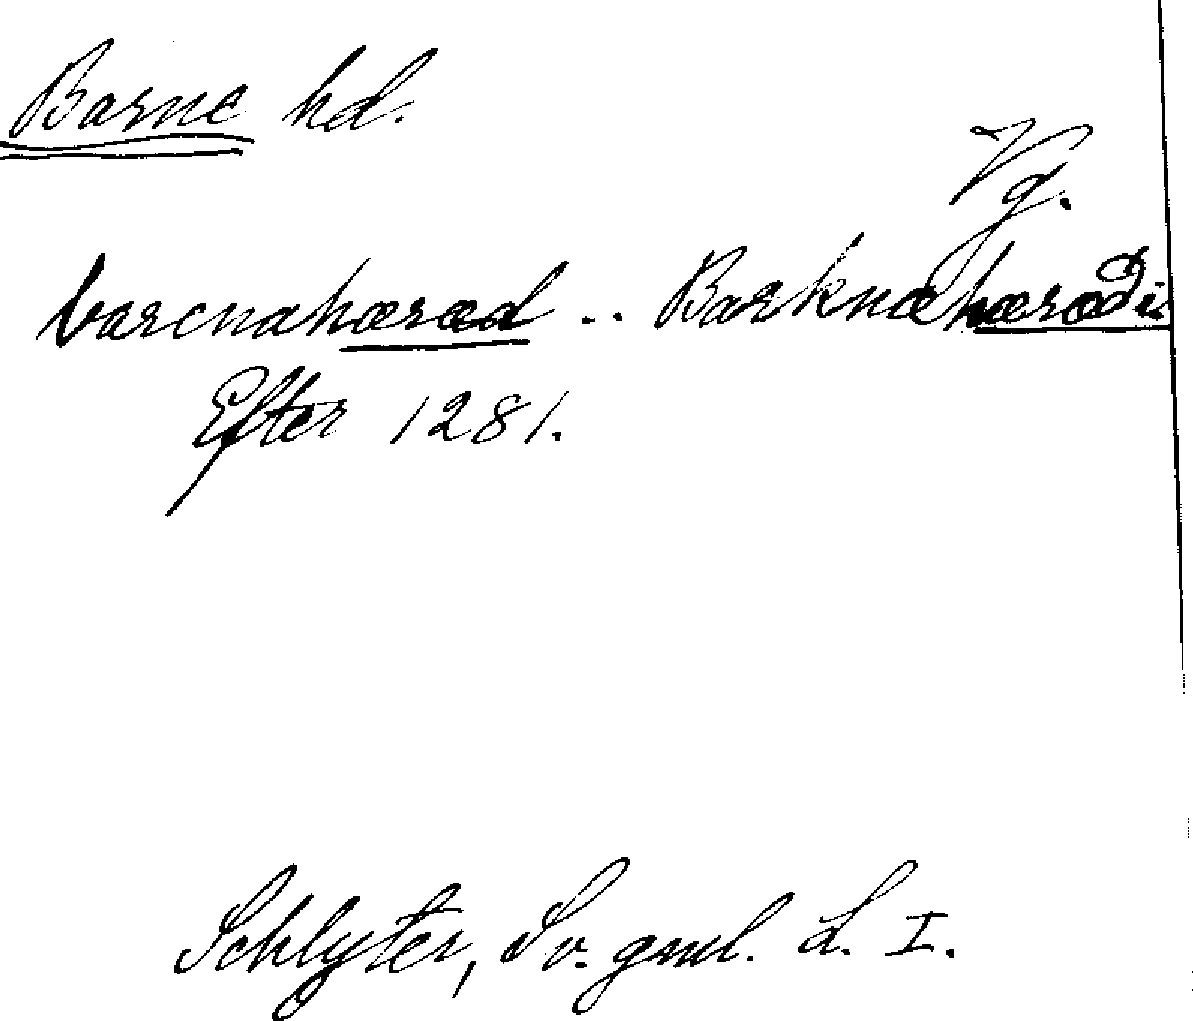 Barne hd.
Vg.
barcnahæræd .. Barknæhæræði
Efter 1281.
Schlyter, Sv. gml. L. I.